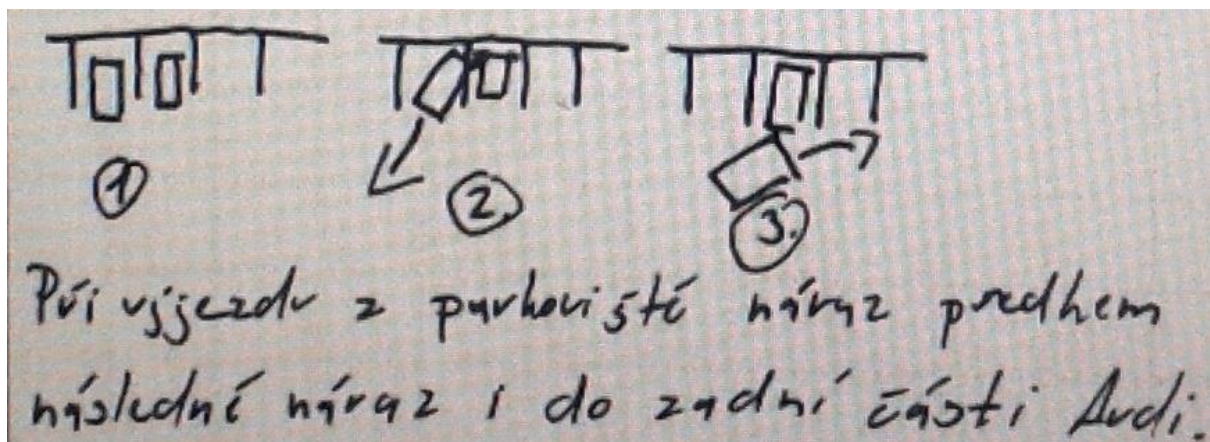 1
2.
3.
Při výjezdu z parkoviště náraz predhem
následné náraz i do zadní části Audi.